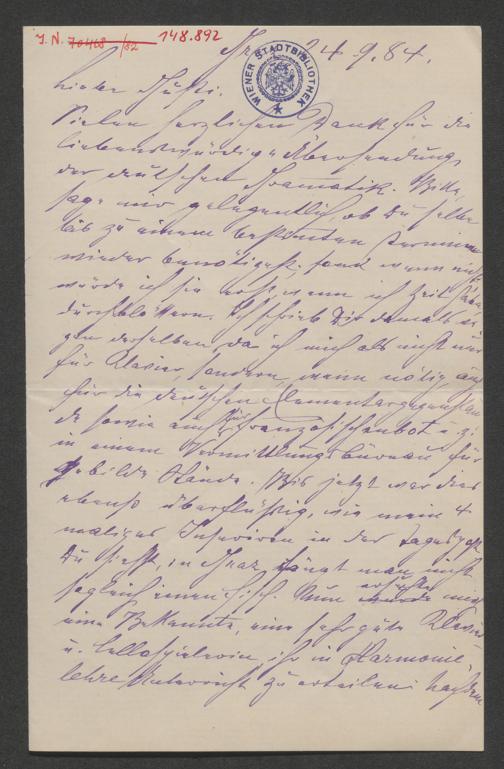 J. N. 70468 /82 148.892
WIENER STADTBIBLIOTHEK
24.9.84.
Lieber
Vielen herzlichen Dank für die
liebenswürdige Übersendung
der deutschen Gramatik. Bitte,
sage mir gelegentlich, ob Du selbe
bis zu einem bestimten Termine
wieder benötigest, sonst wenn nicht
würde ich sie erst, wenn ich Zeit habe,
durchblättern. Ich schrieb Dir damals we-
gen derselben, da ich mich als nicht nur
für Klavier, sondern, wenn nötig, auch
für die deutschen Elementargegenstän-
de sowie auch für Französisch anbot u. z.
in einem Vermittlungsbüreau für
gebild. Stände. Bis jetzt war dies
ebenso überflüssig, wie mein 4
maliges Inseriren in der Tagespost
Du siehst, in Graz, fängt man nicht
sogleich einen Fisch. Nun ersuchte mich
eine Bekannte, eine sehr gute Klavier
u. Cellospielerin, ihr in Harmonie-
lehre Unterricht zu erteilen. Nachdem